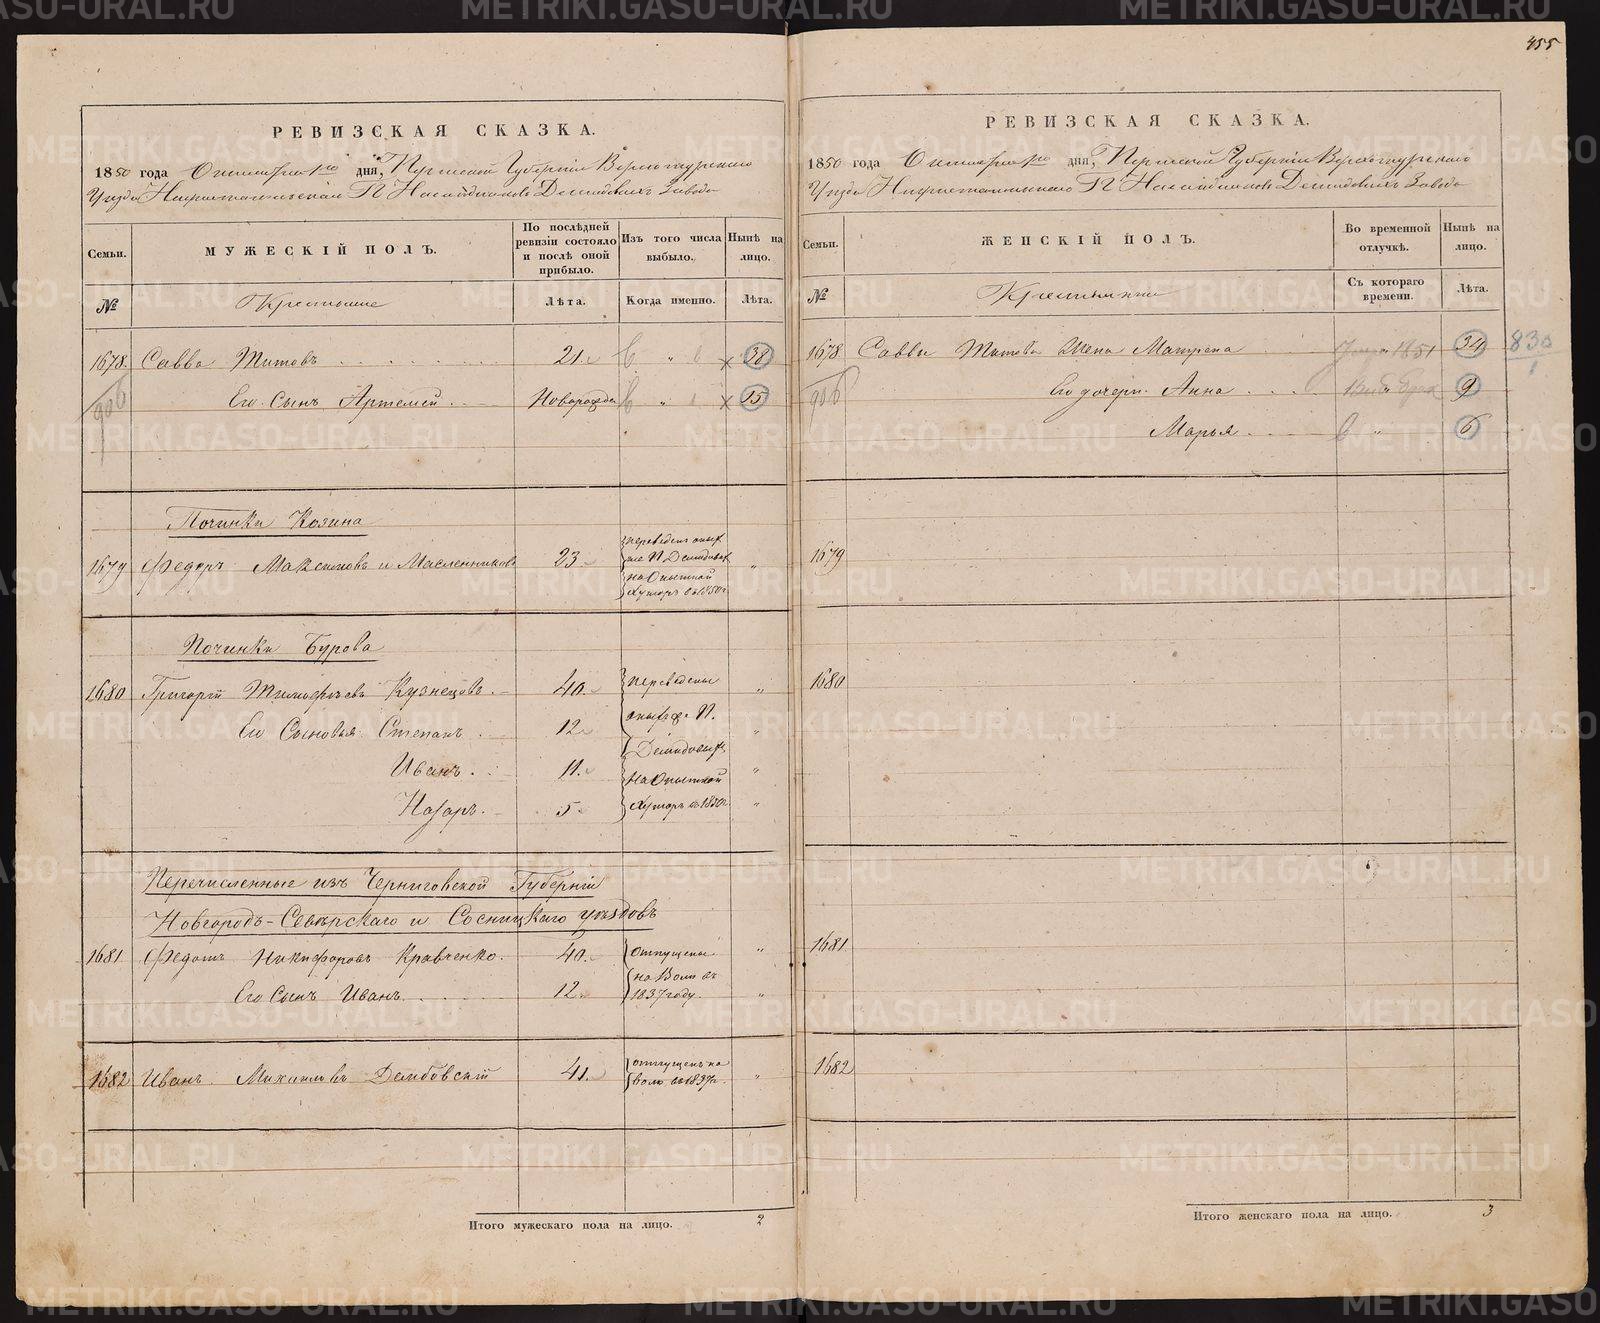 455
РЕВИЗСКАЯ СКАЗКА.
1850 года Октября 1го дня, Пермской Губерніи Верхотурскаго
Уѣзда Нижнетагильскаго П Наслѣдниковъ Демидовыхъ Завода
Семьи.
МУЖЕСКІЙ ПОЛЪ.
По послѣдней ревизіи состояло и послѣ оной прибыло.
Изъ того числа выбыло.
Нынѣ на лицо.
№
Крестьяне
Лѣта.
Когда именно.
Лѣта.
1678. Савва Титовъ 21. „ 38
Его Сынъ Артемей Новорожден „ 15
Починки Козина
1679 Федоръ Максимовъ и Масленниковъ 23 „
П Демидовых
на Опытной
Хуторъ въ 1850 г.
Починки Бурова
1680 Григорій Тимофѣевъ Кузнецовъ 40. переведены „
Его Сыновья Степанъ 12 П. „
Иванъ. 11. Демидовых „
на Опытной
Назаръ. 5 Хуторъ въ 1850 г. „
Перечисленные изъ Черниговской Губерніи
Новгородъ-Сѣверскаго и Сосницкаго уѣздовъ
1681 Федотъ Никифоровъ Кравченко. 40. отпущены „
на Волю въ
Его Сынъ Иванъ. 12. 1837 году. „
1682 Иванъ Михайловъ Дембовскій 41. отпущенъ на „
волю въ 1837 г.
Итого мужескаго пола на лицо. 2
РЕВИЗСКАЯ СКАЗКА.
1850 года Октября 1го дня, Пермской Губерніи Верхотурскаго
Уѣзда Нижнетагильскаго П Наслѣдниковъ Демидовыхъ Завода
Семьи.
ЖЕНСКІЙ ПОЛЪ.
Во временной отлучкѣ.
Нынѣ на лицо.
№
Крестьянки
Съ котораго времени.
Лѣта.
1678 Саввы Титова Жена Матрена 1851 34 830
Его дочери Анна 9 1
Марья „ 6
1679
1680
1681
1682
Итого женскаго пола на лицо. 3
METRIKI.GASO-URAL.RU